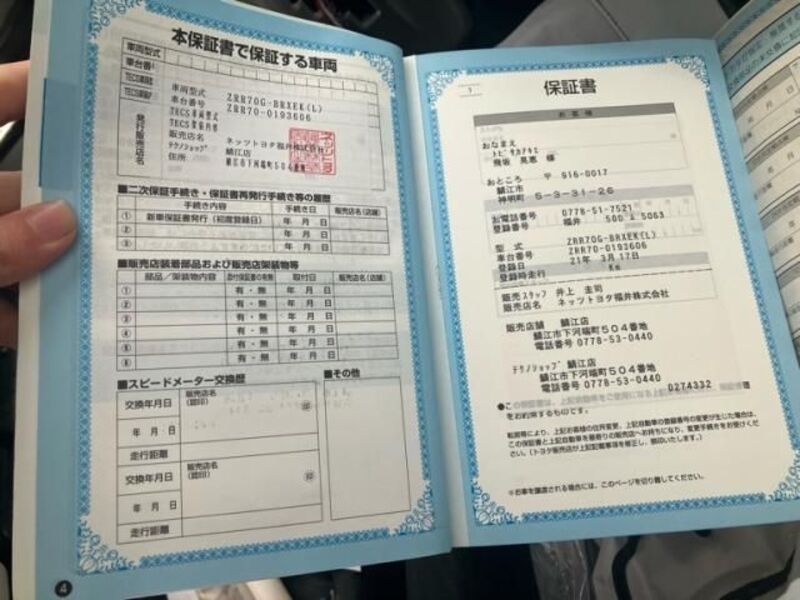 本保証書で保証する車両
車両型式
車台番号
発行販売店名
車両型式 ZRR70G-BRXEK(L)
車台番号 ZRR70-0193606
TECS車両型式
TECS架装内容
販売店名 ネッツトヨタ福井株式会社
テクノショップ 鯖江店
住所 鯖江市下河端町504番地
■二次保証手続き・保証書再発行手続き等の履歴
手続き内容 手続き日 販売店名(店舗)
① 新車保証書発行(初度登録日) 年 月 日
② 年 月 日
③ 年 月 日
■販売店装着部品および販売店架装物等
部品/架装物内容 添付保証書の有無 取付日 販売店名(店舗)
① 有・無 年 月 日
② 有・無 年 月 日
③ 有・無 年 月 日
④ 有・無 年 月 日
⑤ 有・無 年 月 日
⑥ 有・無 年 月 日
■スピードメーター交換歴
■その他
交換年月日 販売店名(認印) 印
年 月 日
走行距離
交換年月日 販売店名(認印) 印
年 月 日
走行距離
4
保証書
お客様
おなまえ
トビサカアキエ
飛坂 晃恵 様
おところ 〒 916-0017
鯖江市
神明町 5-3-31-26
お電話番号 0778-51-7521
登録番号 福井 500 5063
型式 ZRR70G-BRXEK(L)
車台番号 ZRR70-0193606
登録日 21年 3月17日
登録時走行 Km
販売スタッフ 井上 圭司
販売店名 ネッツトヨタ福井株式会社
販売店舗 鯖江店
鯖江市下河端町504番地
電話番号 0778-53-0440
テクノショップ 鯖江店
鯖江市下河端町504番地
電話番号 0778-53-0440
0274332
をお約束するものです。
転居等により、上記お客様の住所変更、上記自動車の登録番号の変更が生じた場合は、
この保証書と上記自動車を最寄りの販売店へお持ちになり、変更手続きをお受けくださ
い。(トヨタ販売店が上記記載事項を修正し、捺印いたします。)
※お車を譲渡される場合には、このページを切り離してください。